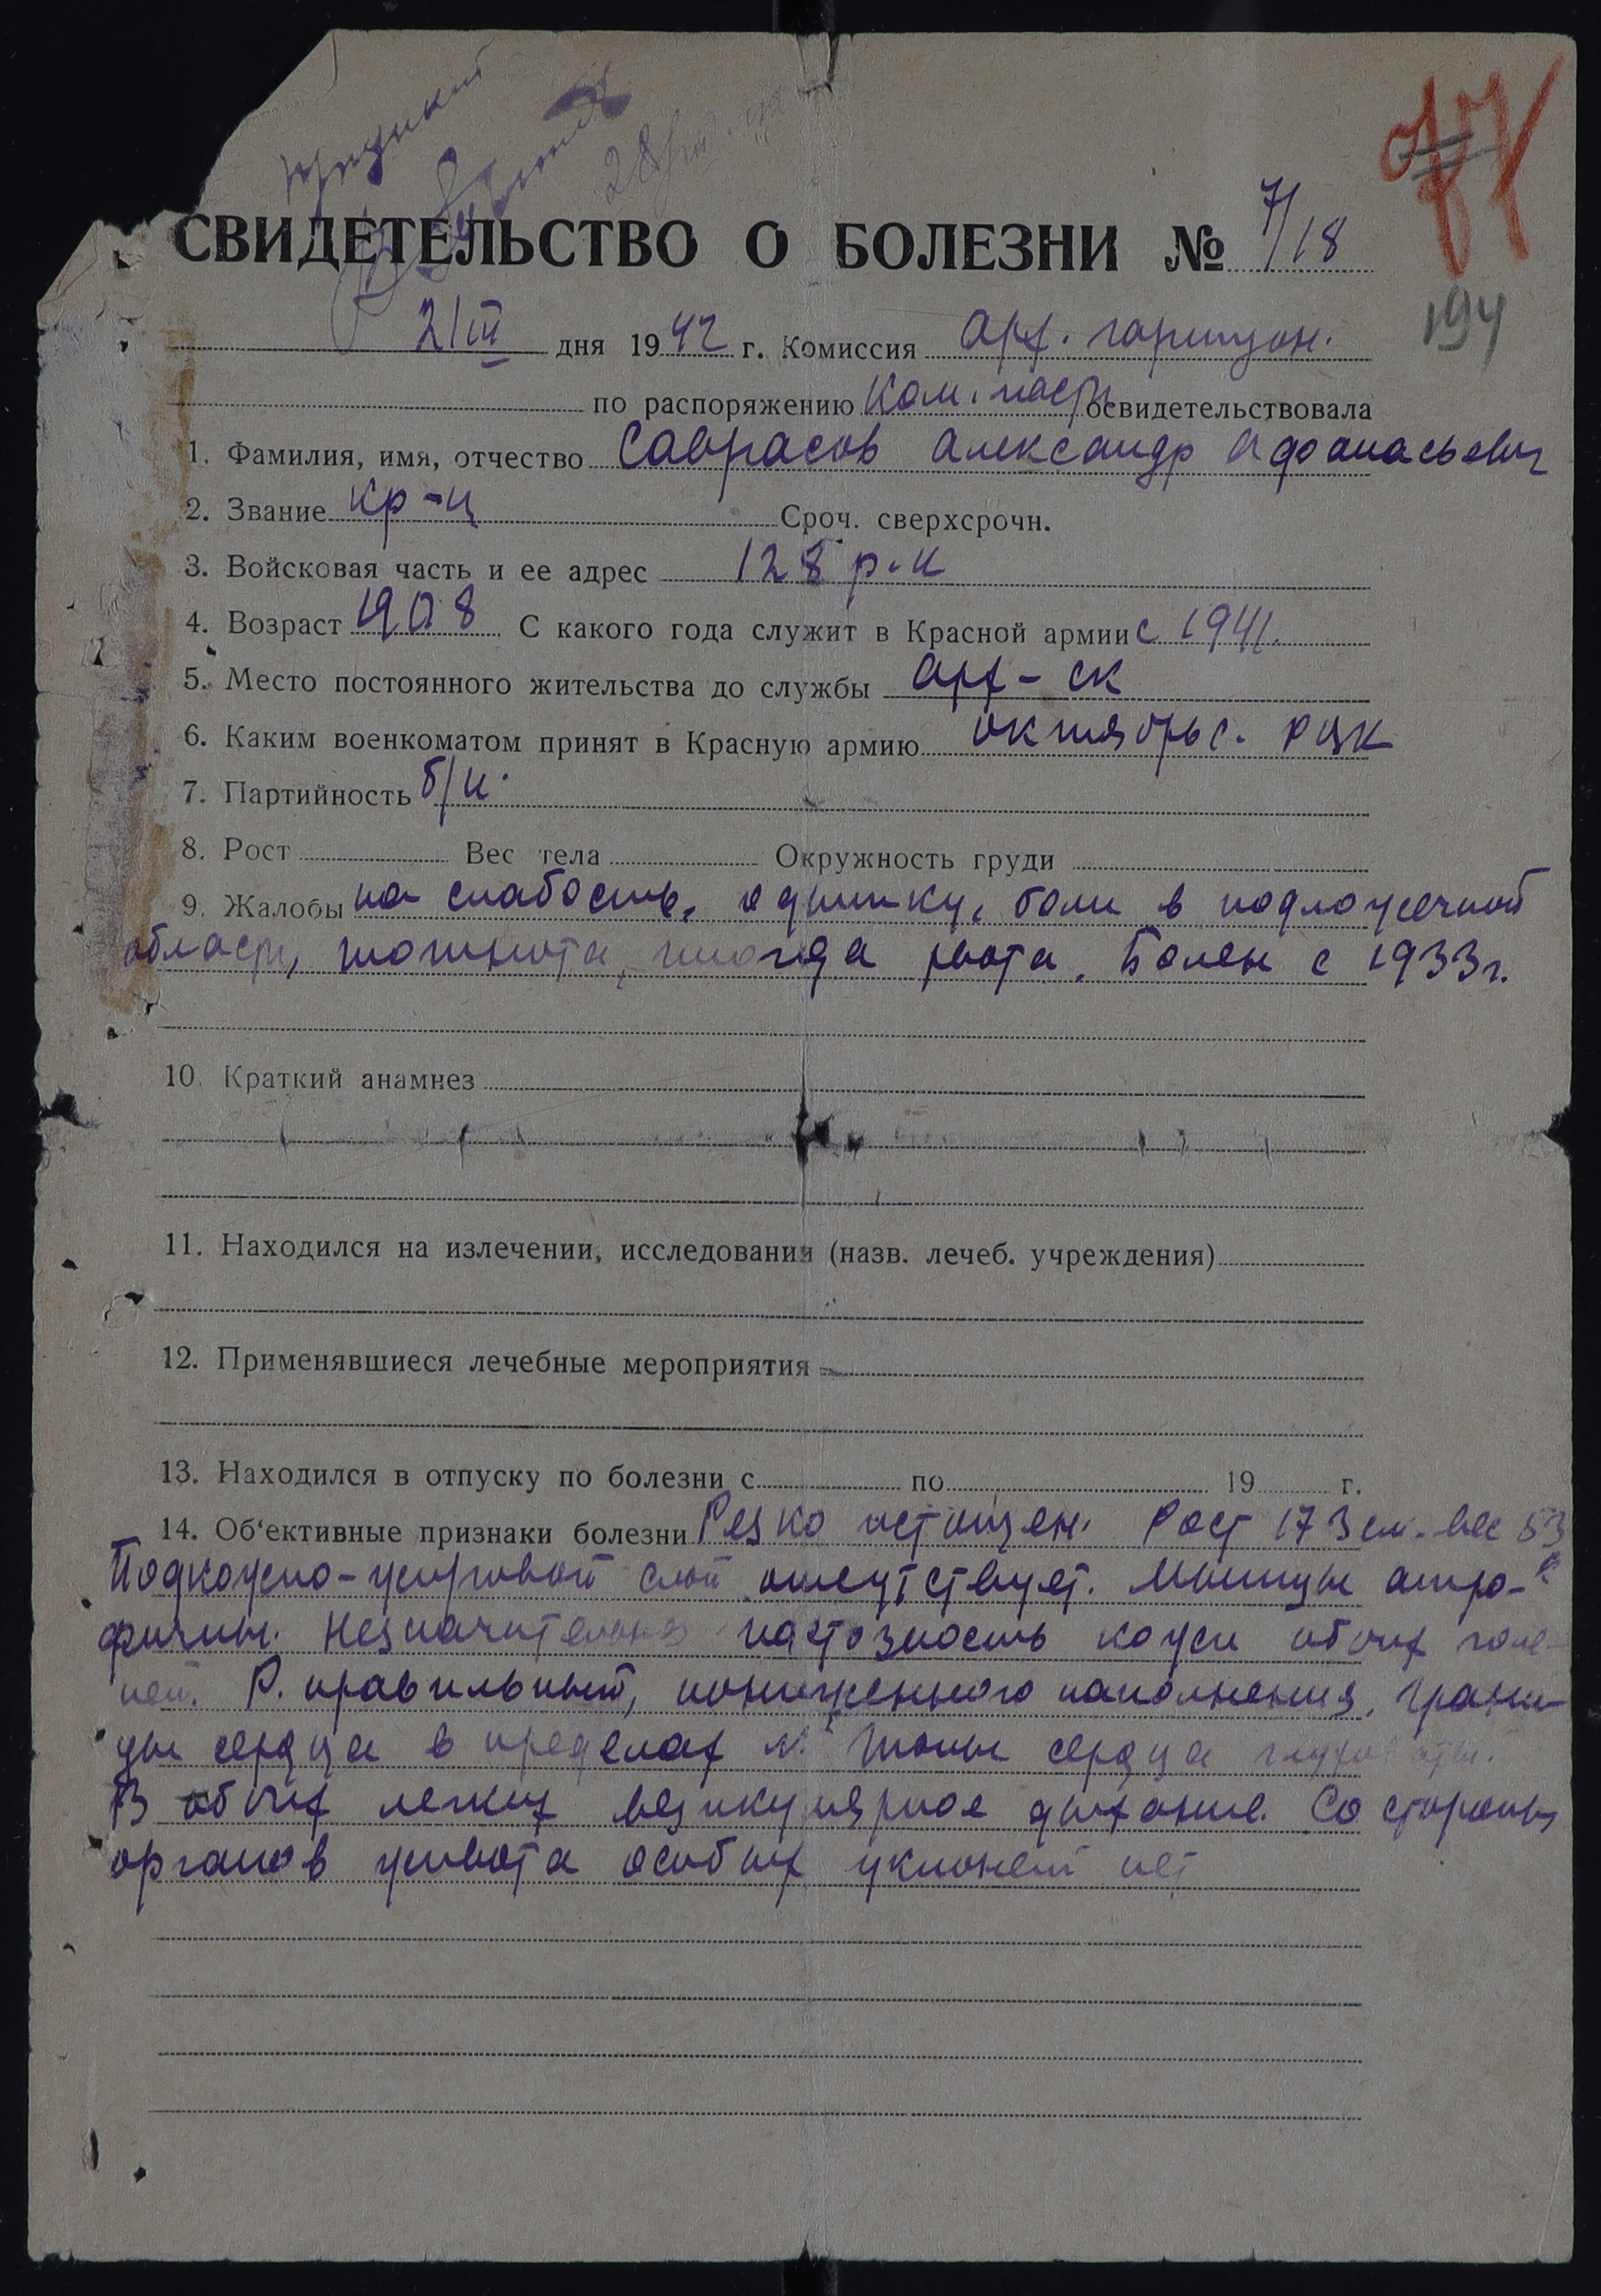 77
194
СВИДЕТЕЛЬСТВО О БОЛЕЗНИ № 7/18
21 III дня 1942 г. Комиссия Арх. гарнизон.
по распоряжению Ком. части освидетельствовала
1. Фамилия, имя, отчество Саврасов Александр Афанасьевич
2. Звание кр-ц Сроч. сверхсрочн.
3. Войсковая часть и ее адрес 128 р.к
4. Возраст 1908 С какого года служит в Красной армии с 1941.
5. Место постоянного жительства до службы Арх-ск
6. Каким военкоматом принят в Красную армию октябрьс. РВК
7. Партийность б/п.
8. Рост Вес тела Окружность груди
9. Жалобы на слабость, одышку, боли в подложечной
области, тошнота, иногда рвота. Болен с 1933 г.
10. Краткий анамнез
11. Находился на излечении, исследовании (назв. лечеб. учреждения)
12. Применявшиеся лечебные мероприятия
13. Находился в отпуску по болезни с по 19 г.
14. Об‘ективные признаки болезни Резко истощен. Рост 173 см. вес 53
Подкожно-жировой слой отсутствует. Мышцы атро-
фичны. Незначительная пастозность кожи обоих голе-
ней. Р. правильный, пониженного наполнения, грани-
цы сердца в пределах N. Тоны сердца глуховаты.
В обоих легких везикулярное дыхание. Со стороны
органов живота особых уклонений нет